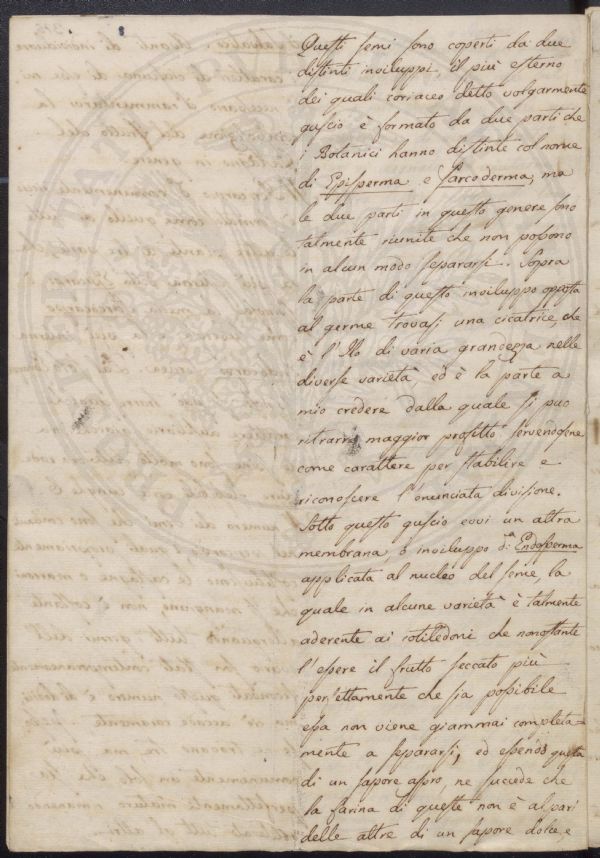 Questi semi sono coperti da due
distinti inviluppi, il più esterno
dei quali coriaceo detto volgarmente
guscio è formato da due parti che
i Botanici hanno distinte col nome
di Episperma e Sarcoderma, ma
le due parti in questo genere sono
talmente riunite che non possono
in alcun modo separarsi. Sopra
la parte di questo inviluppo opposta
al germe trovasi una cicatrice, che
è l'Ilo di varia grandezza nelle
diverse varietà, ed è la parte a
mio credere dalla quale si può
ritrarre maggior profitto servendosene
come carattere per stabilire e
riconoscere l'enunciata divisione.
Sotto questo guscio evvi un altra
membrana o inviluppo d.ª Endosperma
applicata al nucleo del seme, la
quale in alcune varietà è talmente
aderente ai cotiledoni che nonostante
l'essere il frutto seccato più
perfettamente che sia possibile
essa non viene giammai completa=
mente a separarsi, ed essendo questa
di un sapore aspro, ne succede che
la farina di queste non è al pari
delle altre di un sapore dolce, e